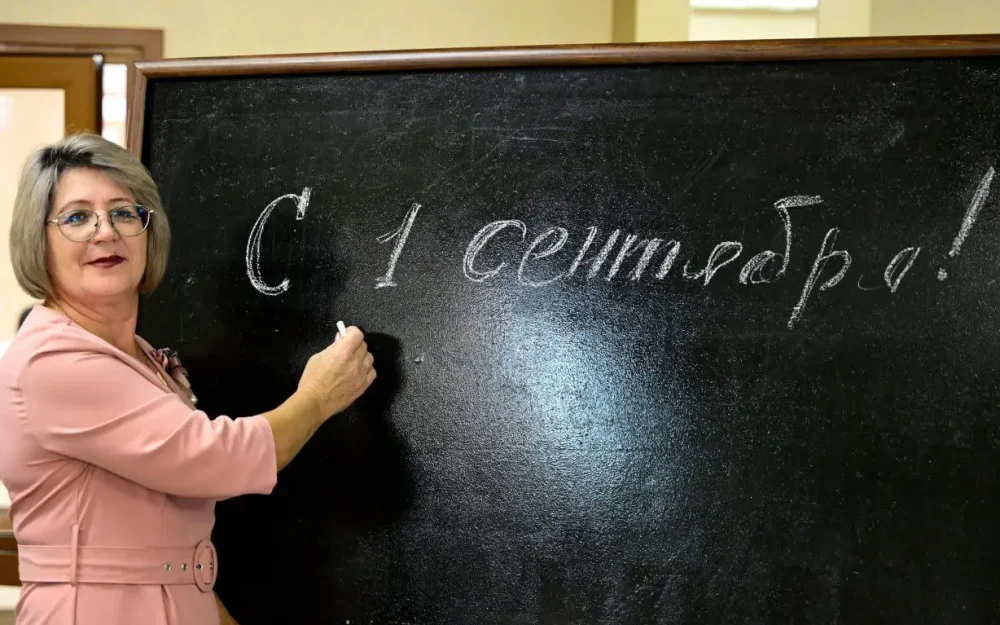 С 1 сентября!